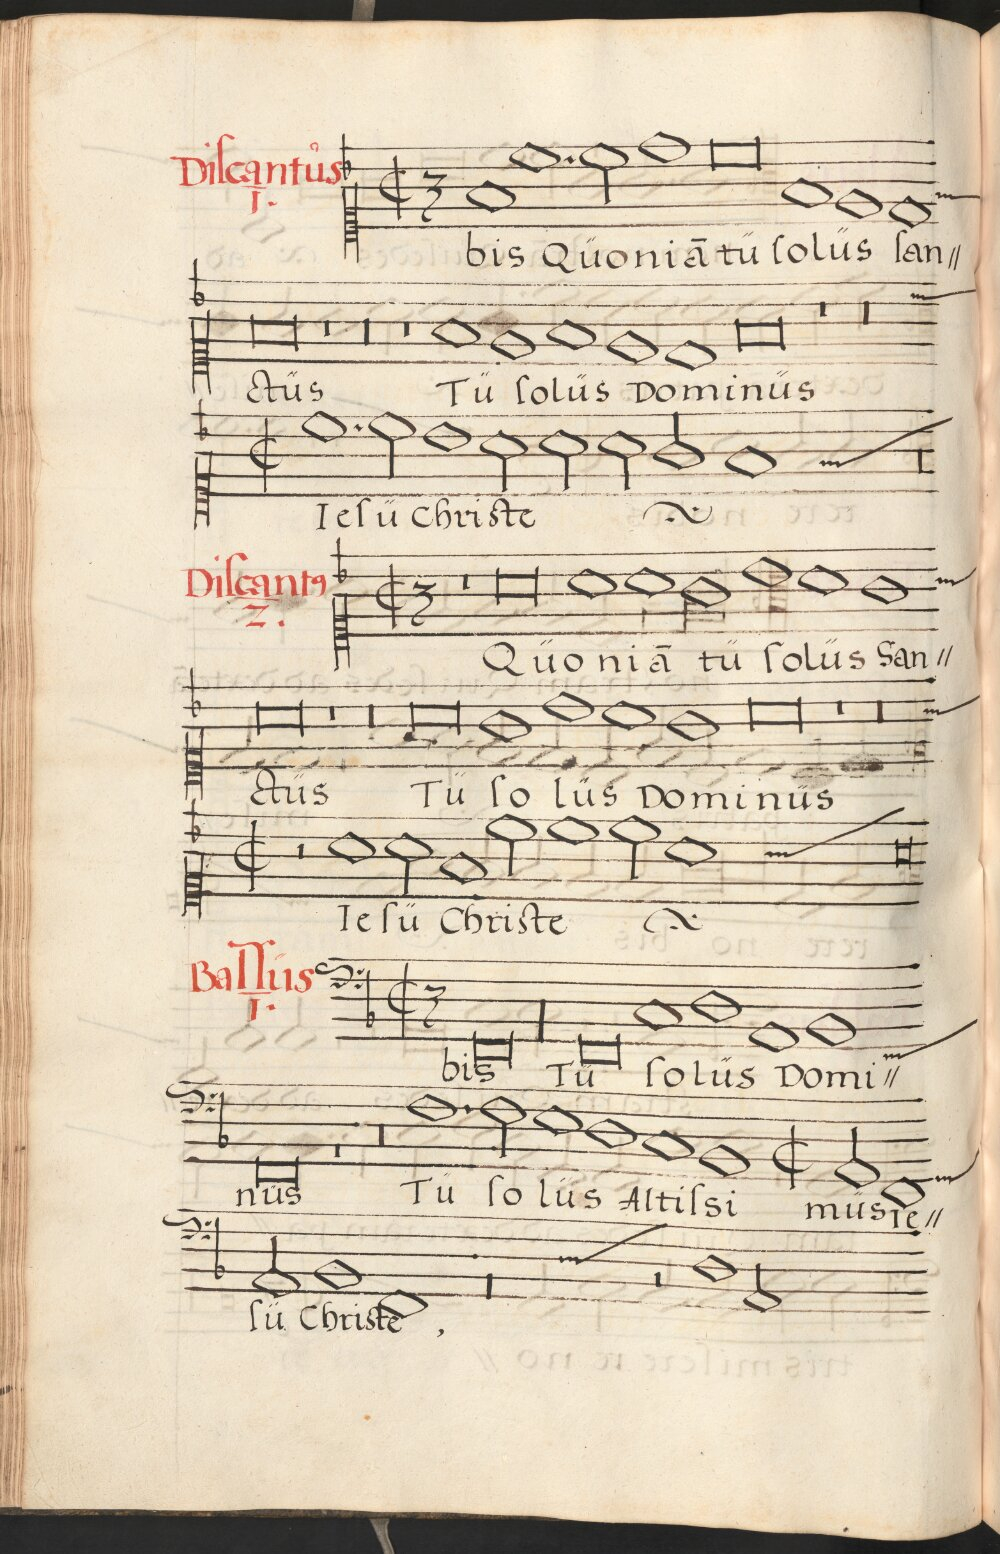 Discantus
I.
bis Qüoniā tü solüs san//
ctüs Tü solüs Dominüs
Iesü Christe
Discantꝰ
2.
Qüoniā tü solüs San//
ctüs Tü solüs Dominüs
Iesü Christe
Bassüs
I.
bis Tü solüs Domi//
nüs Tü solüs Altissi müs Ie//
sü Christe,